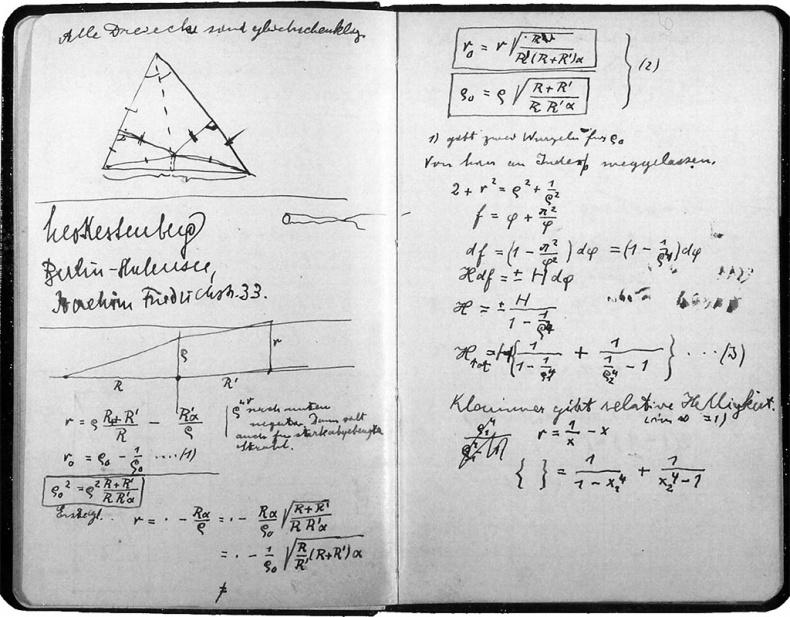 Alle Dreiecke sind gleichschenklig.
Leo Kestenberg
Berlin-Halensee,
Joachim Friedrichstr. 33.
ρ r
R R'
r = ρ (R+R')/R − R'α/ρ
nach unten
negativ. Dann gilt
auch für stark abgebeugten
Strahl.
r₀ = ρ₀ − 1/ρ₀ ....(1)
ρ₀² = ρ² (R+R')/(R R'α)
r = · − Rα/ρ = · − Rα/ρ₀ √((R+R')/(R R'α))
= · − 1/ρ₀ √(R/R' (R+R')α)
r₀ = r √(R/(R'(R+R')α))
ρ₀ = ρ √((R+R')/(R R'α))
} (2)
1) gibt zwei Wurzeln für ρ₀
Von hier an Index weggelassen.
2 + r² = ρ² + 1/ρ²
f = φ + π²/φ
df = (1 − π²/φ²) dφ = (1 − 1/ρ⁴) dφ
H df = ± H dφ
H = ± H/(1 − 1/ρ⁴)
H tot = H { 1/(1 − 1/ρ₁⁴) + 1/(1/ρ₂⁴ − 1) } ··· (3)
Klammer gibt relative Helligkeit.
(in ∞ = 1)
r = 1/x − x
{ } = 1/(1 − x₁⁴) + 1/(x₂⁴ − 1)